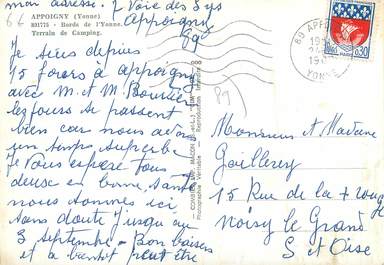 mon adresse. 7 Voie des 3 ys
66 APPOIGNY (Yonne) Appoigny
891775 - Bords de l'Yonne.
Terrain de Camping.
89
Je suis depuis
15 jours à appoigny
avec M. et M. Boursier
les jours se passent
bien car nous avons
un temps superbe
Je vous espère tous
deux en bonne santé
nous sommes ici
sans doute jusqu'au
3 Septembre - Bon baisers
et a bientôt peut être
Photographie Véritable - Reproduction Interdite
89
89 APPOIGNY
YONNE
0,30
Monsieur et Madame
Gaillerey
15 Rue de la + rouge
Noisy le Grand
S et Oise